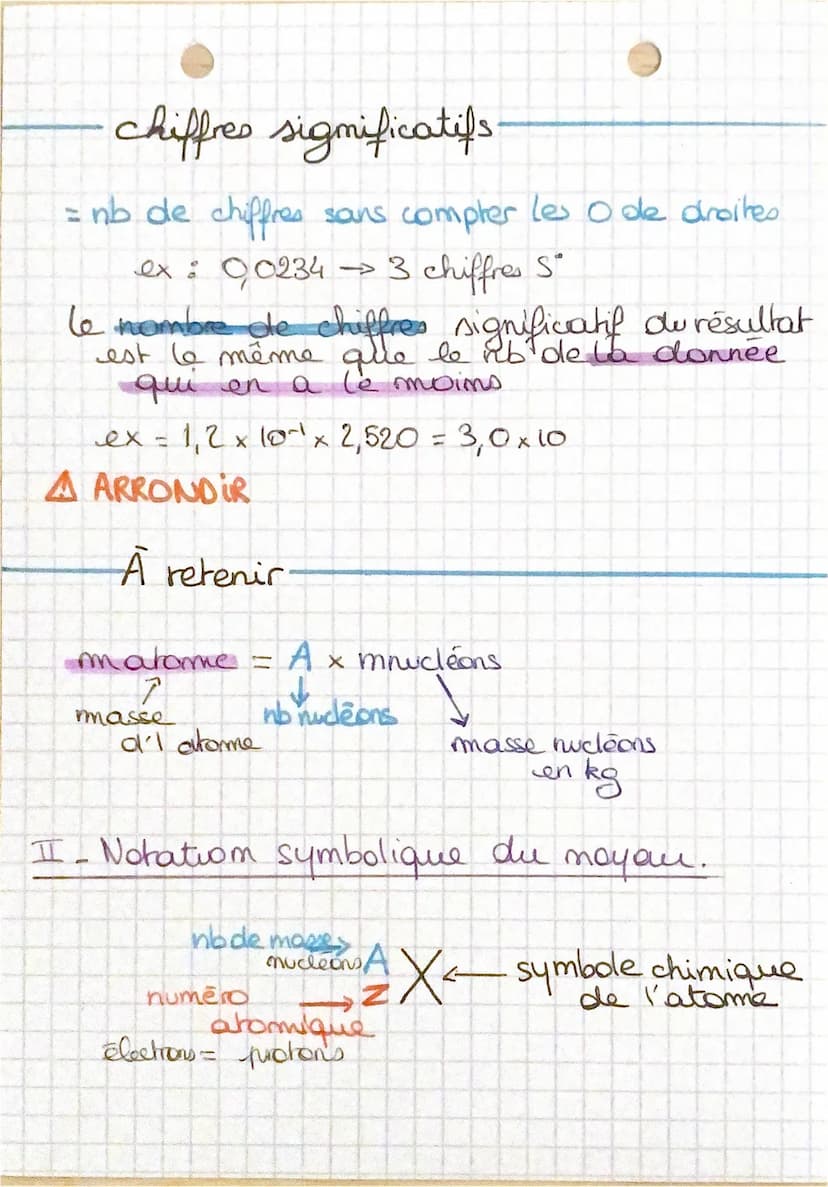 chiffres significatifs
= nb de chiffres sans compter les 0 de droites
ex : 0,0234 → 3 chiffres S°
le nombre de chiffres significatif du résultat
est le même que le nb de la donnée
qui en a le moins
ex = 1,2 x 10⁻¹ x 2,520 = 3,0 x 10
⚠ ARRONDIR
À retenir
m atome = A x mnucléons
masse d'1 atome
nb nucléons
masse nucléons en kg
II - Notation symbolique du noyau.
nb de masse →
nucléons A
X ← symbole chimique
de l'atome
numéro → Z
atomique
électrons = protons